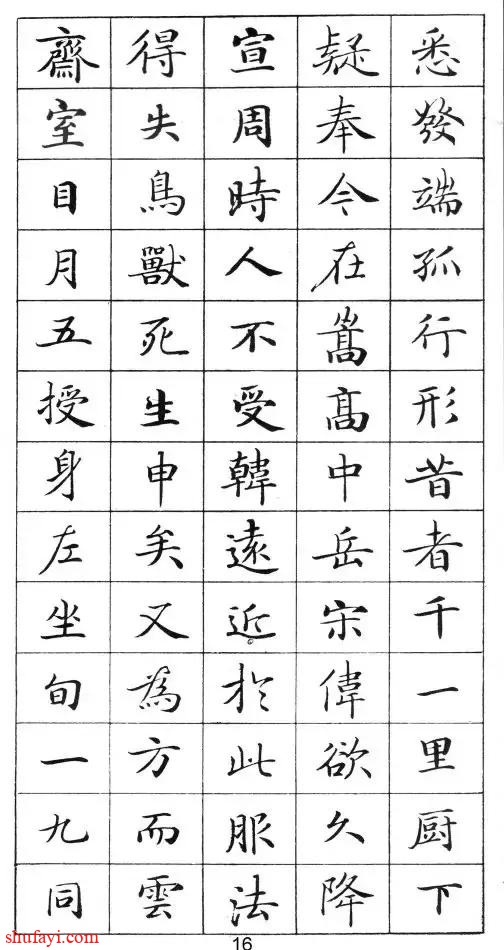 悉發端孤行形昔者千一里厨下
疑奉令在嵩高中岳宋偉欲久降
宣周時人不受韓遠近於此服法
得失鳥獸死生申矣又為方而雲
齋室目月五授身左坐旬一九同
shufayi.com
16